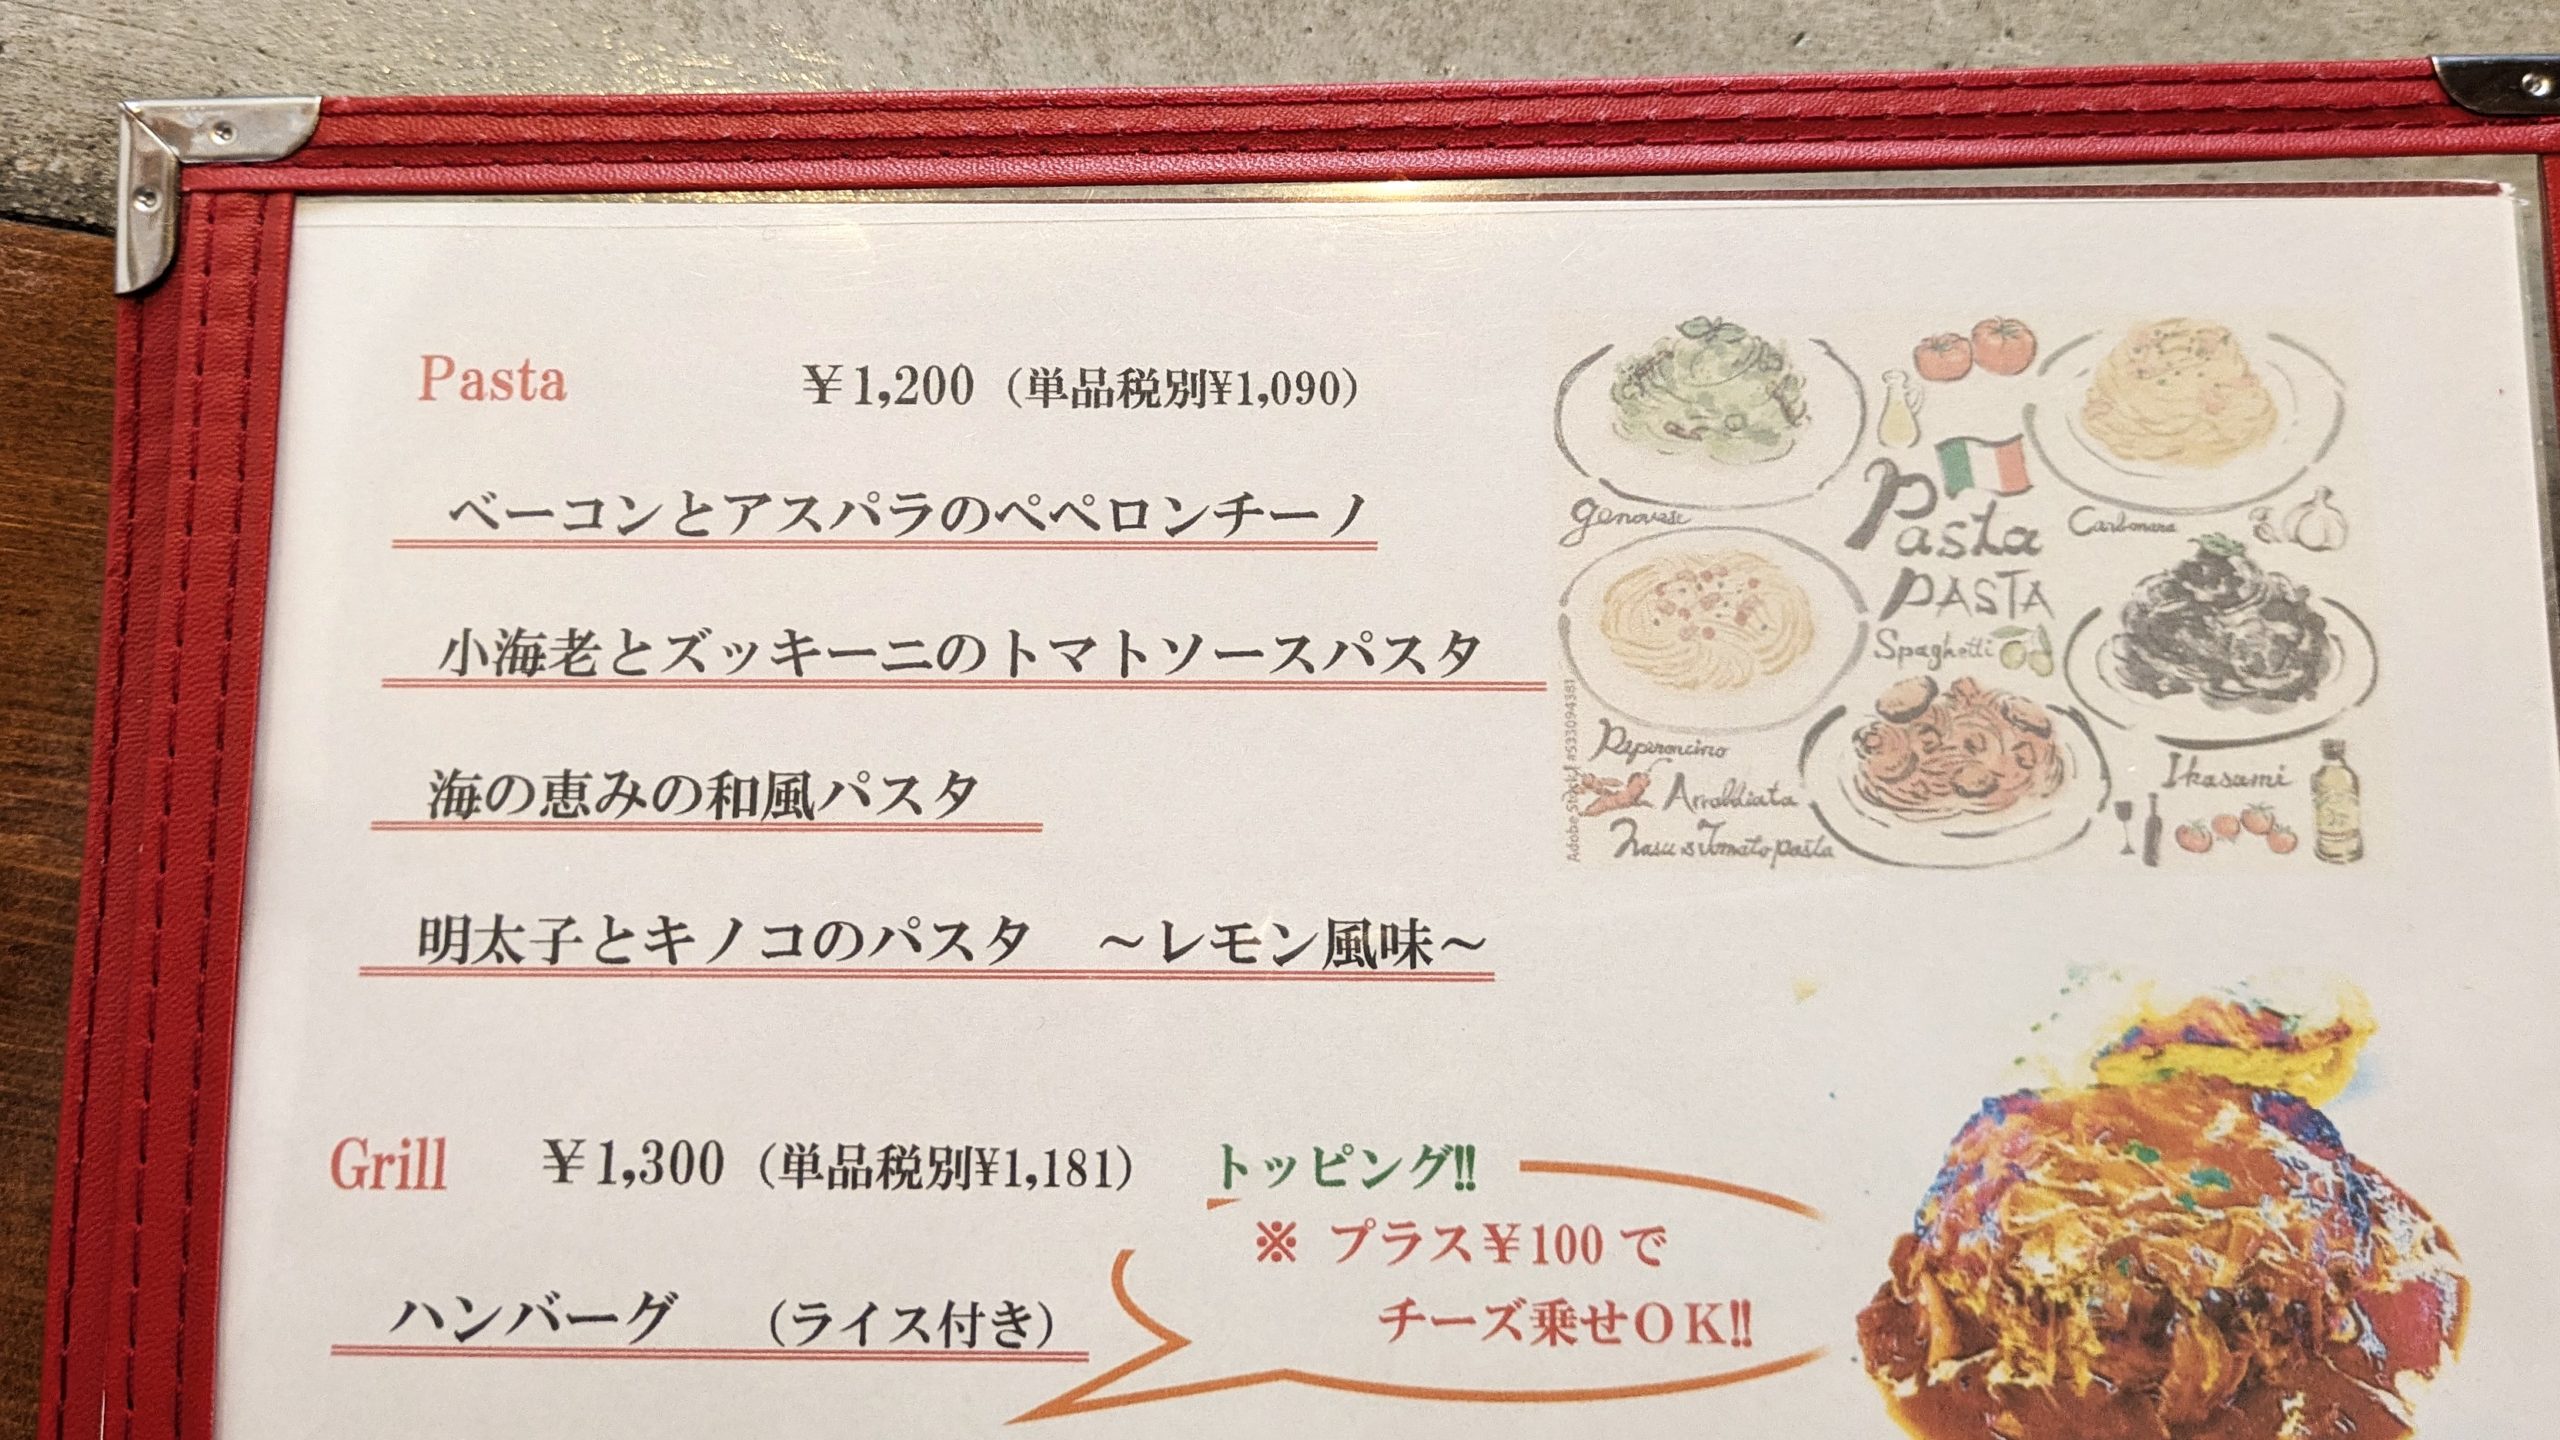 Pasta ￥1,200 (単品税別¥1,090)
ベーコンとアスパラのペペロンチーノ
小海老とズッキーニのトマトソースパスタ
海の恵みの和風パスタ
明太子とキノコのパスタ ～レモン風味～
genovese
Pasta
Carbonara
PASTA
Spaghetti
Peperoncino
Arrabbiata
Ikasumi
Nasu & Tomato pasta
Adobe Stock | #533094381
Grill ￥1,300 (単品税別¥1,181)
トッピング!!
※ プラス￥100 で
チーズ乗せＯＫ!!
ハンバーグ (ライス付き)